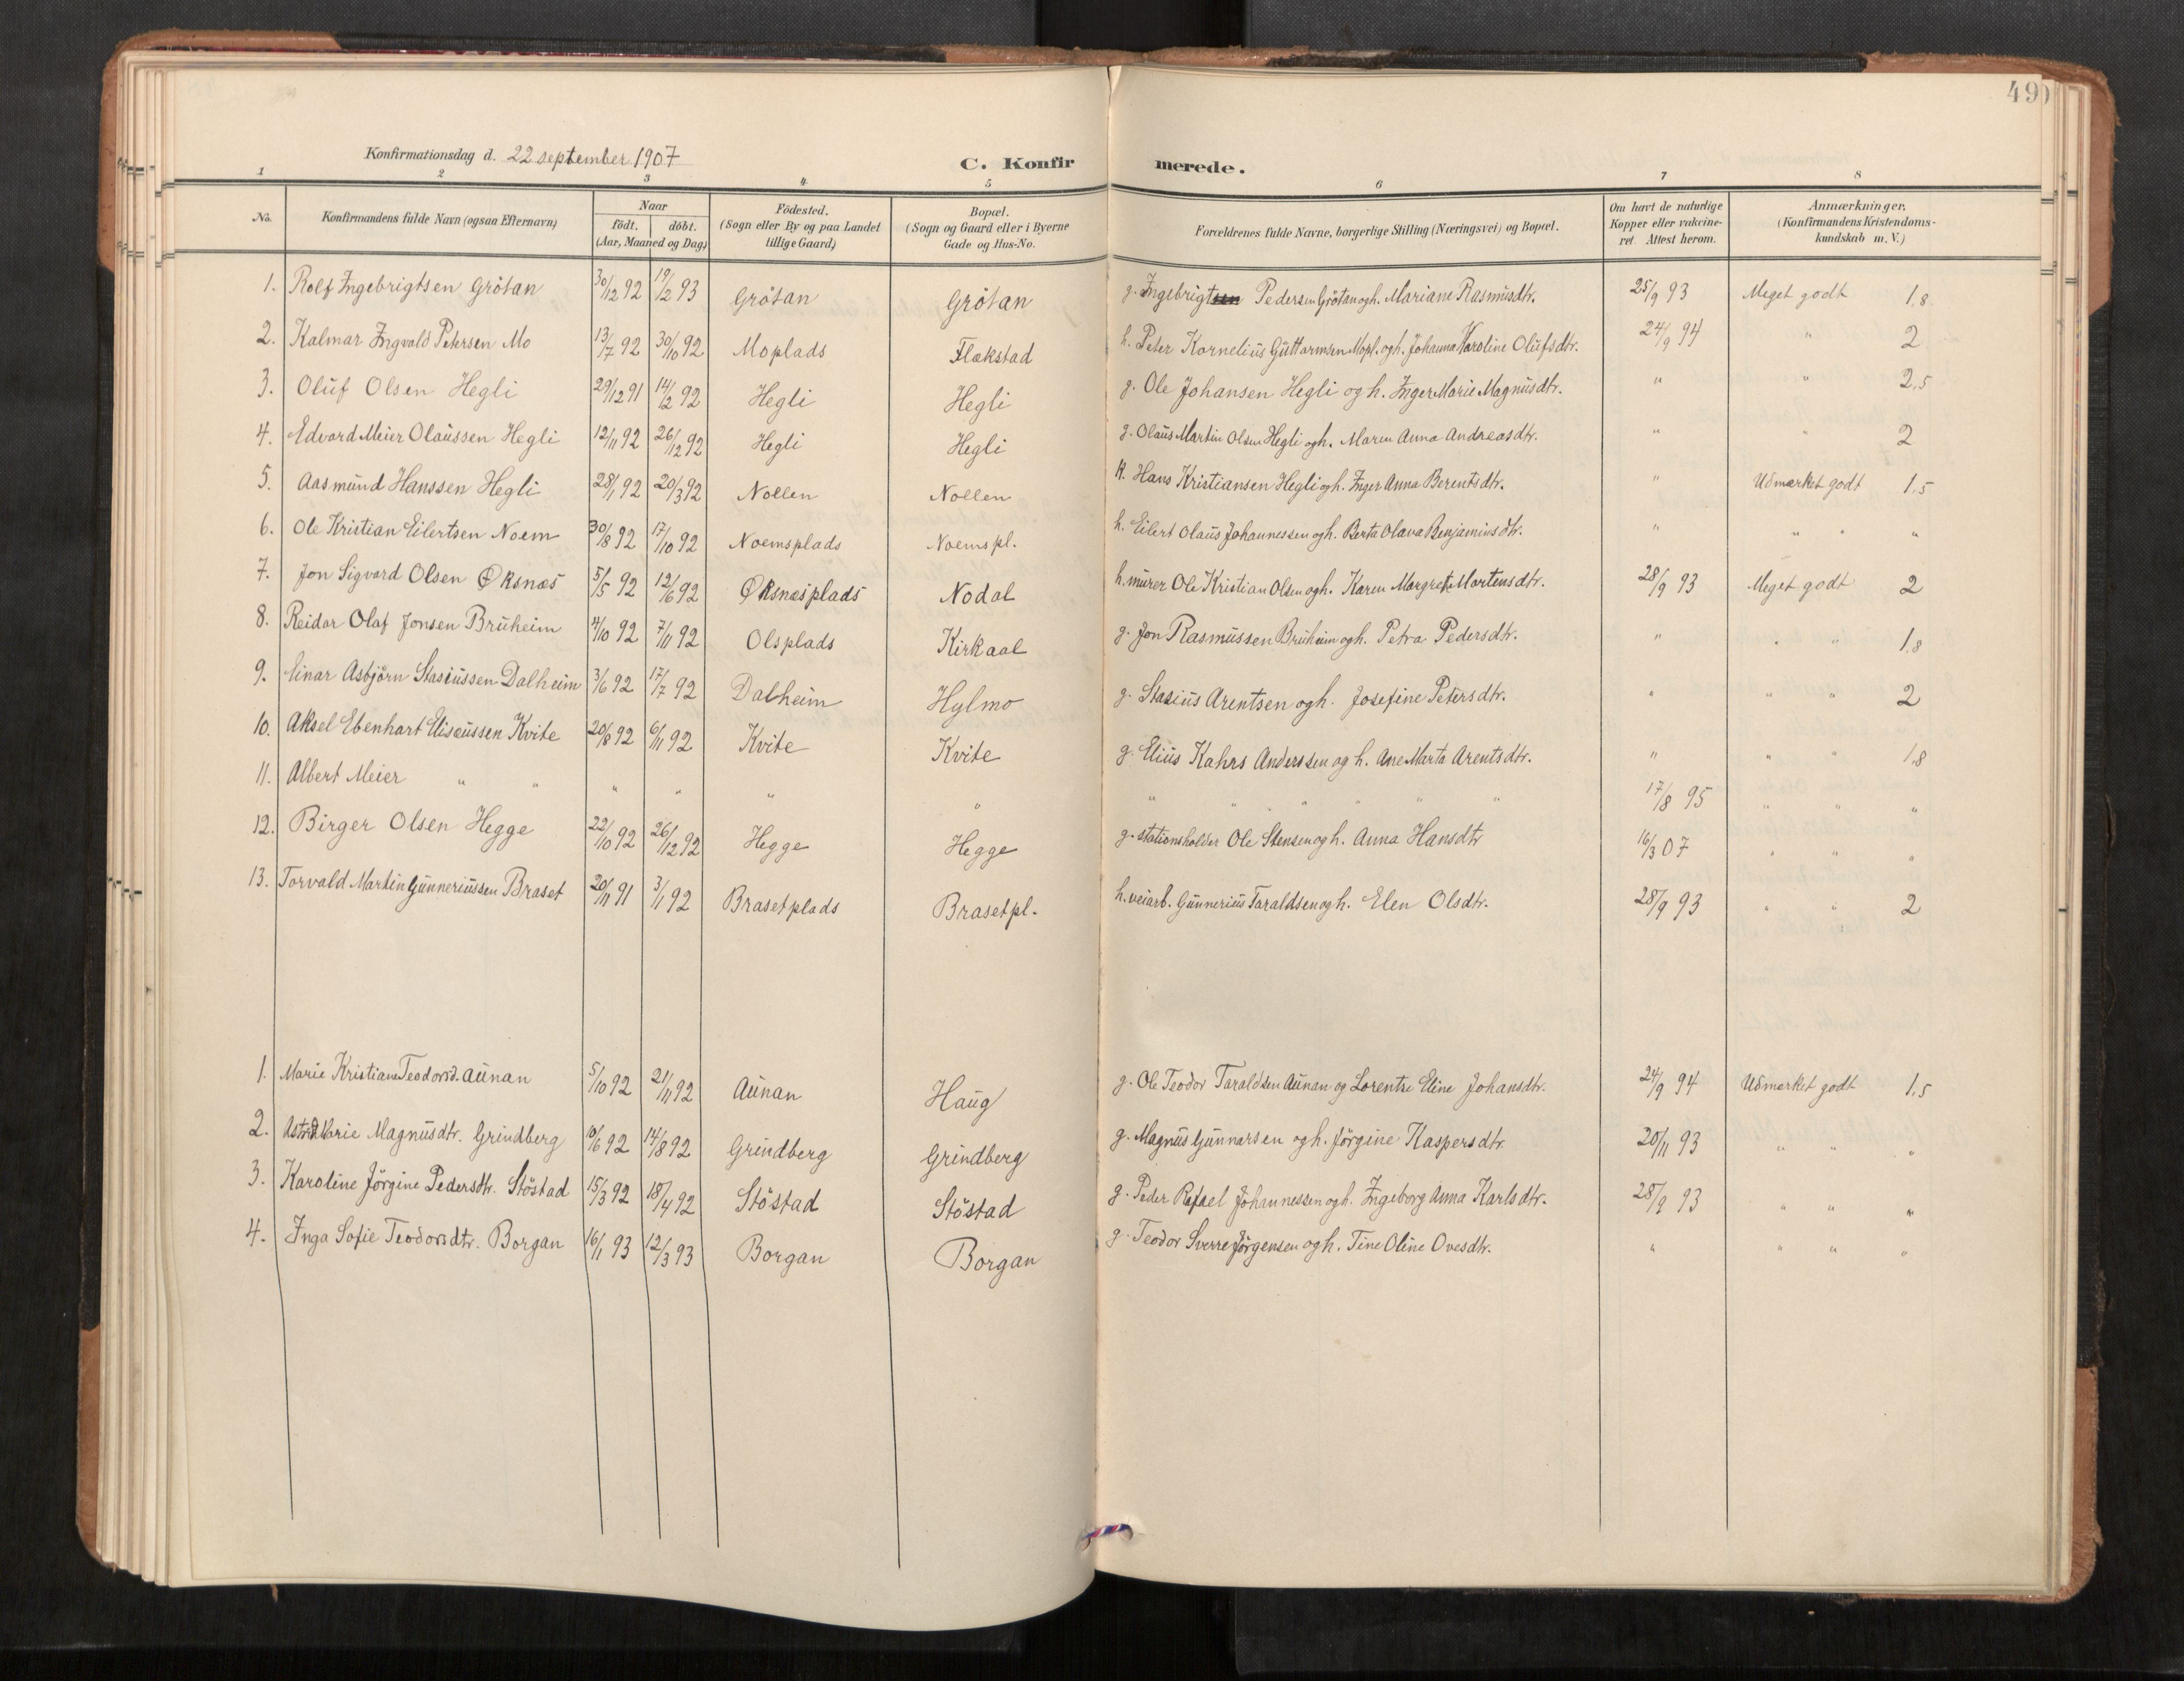 49)
Konfirmationsdag d. 22 september 1907
C. Konfir merede.
1 2 3 4 5 6 7 8
No. Konfirmandens fulde Navn (ogsaa Efternavn) Naar født. døbt. (Aar, Maaned og Dag) Födested. (Sogn eller By og paa Landet tillige Gaard) Bopæl. (Sogn og Gaard eller i Byerne Gade og Hus-No. Forældrenes fulde Navne, borgerlige Stilling (Næringsvei) og Bopæl. Om havt de naturlige Kopper eller vakcineret. Attest herom. Anmærkninger. (Konfirmandens Kristendomskundskab m. V.)
1. Rolf Ingebrigtsen Grötan 30/12 92 19/2 93 Grötan Grötan g. Ingebrigt Pedersen Grötan og h. Mariane Rasmusdtr. 25/9 93 Meget godt 1,8
2. Kalmar Ingvald Petersen Mo 13/7 92 30/10 92 Moplads Flækstad h. Peter Kornelius Guttormsen Mopl. og h. Johanna Karoline Olufsdtr. 24/9 94 " 2
3. Oluf Olsen Hegli 29/12 91 14/2 92 Hegli Hegli g. Ole Johansen Hegli og h. Inger Marie Magnusdtr. " " 2,5
4. Edvard Meier Olaussen Hegli 12/11 92 26/12 92 Hegli Hegli g. Olaus Martin Olsen Hegli og h. Maren Anna Andreasdtr. " " 2
5. Aasmund Hanssen Hegli 28/1 92 20/3 92 Nollen Nollen k. Hans Kristiansen Hegli og h. Inger Anna Berentsdtr. " Udmærket godt 1,5
6. Ole Kristian Eilertsen Noem 30/8 92 17/10 92 Noemsplads Noemspl. h. Eilert Olaus Johannessen og h. Berta Olava Benjaminsdtr. " " " "
7. Jon Sigvard Olsen Øksnæs 5/5 92 12/6 92 Øksnæsplads Nodal h. murer Ole Kristian Olsen og h. Karen Margrete Mortensdtr. 28/9 93 Meget godt 2
8. Reidar Olaf Jonsen Bruheim 4/10 92 7/11 92 Olsplads Kirkaal g. Jon Rasmussen Bruheim og h. Petra Pedersdtr. " " " 1,8
9. Einar Asbjörn Stasiussen Dalheim 3/6 92 17/7 92 Dalheim Hylmo g. Stasius Arentsen og h. Josefine Petersdtr. " " " 2
10. Aksel Ebenhart Eliseussen Kvite 20/8 92 6/11 92 Kvite Kvite g. Elius Kahrs Anderssen og h. Ane Marta Arentsdtr. " " 1,8
11. Albert Meier " " " " " " " " " " " " 17/8 95 " " "
12. Birger Olsen Hegge 22/10 92 26/12 92 Hegge Hegge g. stationsholder Ole Stensen og h. Anna Hansdtr 16/3 07 " " "
13. Torvald Martin Gunneriussen Braset 20/11 91 3/1 92 Brasetplads Brasetpl. h. veiarb. Gunnerius Taraldsen og h. Elen Olsdtr. 28/9 93 " " 2
1. Marie Kristiane Teodorsd. Aunan 5/10 92 21/11 92 Aunan Haug g. Ole Teodor Taraldsen Aunan og Lorentse Eline Johansdtr. 24/9 94 Udmærket godt 1,5
2. Astrid Marie Magnusdtr. Grindberg 10/6 92 14/8 92 Grindberg Grindberg g. Magnus Gunnarsen og h. Jörgine Kaspersdtr 20/11 93 " " "
3. Karoline Jörgine Pedersdtr. Stöstad 15/3 92 18/4 92 Stöstad Stöstad g. Peder Rafael Johannessen og h. Ingeborg Anna Karlsdtr. 28/9 93 " " "
4. Inga Sofie Teodorsdtr. Borgan 16/1 93 12/3 93 Borgan Borgan g. Teodor Sverre Jörgensen og h. Tine Oline Ovesdtr. " " " "